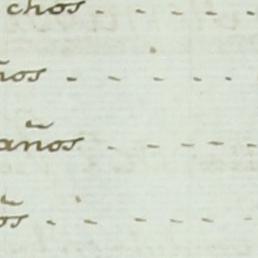 chos - - - - -
ños - - - - -
años - - - - -
ños - - - - - -